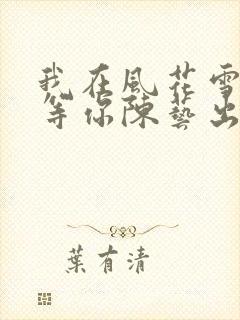 我在風花雪
等你陳藝出
葉有清